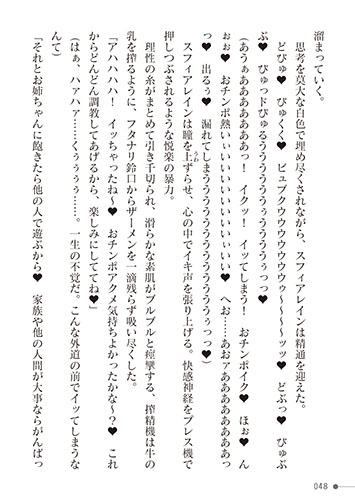 溜まっていく。
　思考を莫大な白色で埋め尽くされながら、スフィアレインは精通を迎えた。
　どぴゅ♥　びゅくく♥　ビュブクウウウウウウウゥ～～～～ッッ♥　どぶっ♥　びゅぶ
ぶ♥　びゅっドびゅるうううううううぅううううぅっっ♥
(あうぁああああああっ！　イクッ！　イッてしまう！　おチンポイク♥　ほぉ♥　ん
ぉぉ♥　おチンポ熱いぃいいいいいいいぃいい♥　へお……あおァああああああああっ
っ♥　出るぅ♥　漏れてしまううううううううううううううぅぅっっ♥)
　スフィアレインは瞳を上ずらせ、心の中でイキ声を張り上げる。快感神経をプレス機で
押しつぶされるような悦楽の暴力。
　理性の糸がまとめて引き千切られ、滑らかな素肌がブルブルと痙攣する、搾精機は牛の
乳を搾るように、フタナリ鈴口からザーメンを一滴残らず吸い尽くした。
「アハハハハ！　イッちゃったね～♥　おチンポアクメ気持ちよかったかな～？♥　これ
からどんどん調教してあげるから、楽しみにしててね♥」
(はぁ、ハァハァ……くぅぅぅぅ……。一生の不覚だ。こんな外道の前でイッてしまうな
んて)
「それとお姉ちゃんに飽きたら他の人で遊ぶから♥　家族や他の人間が大事ならがんばっ
048